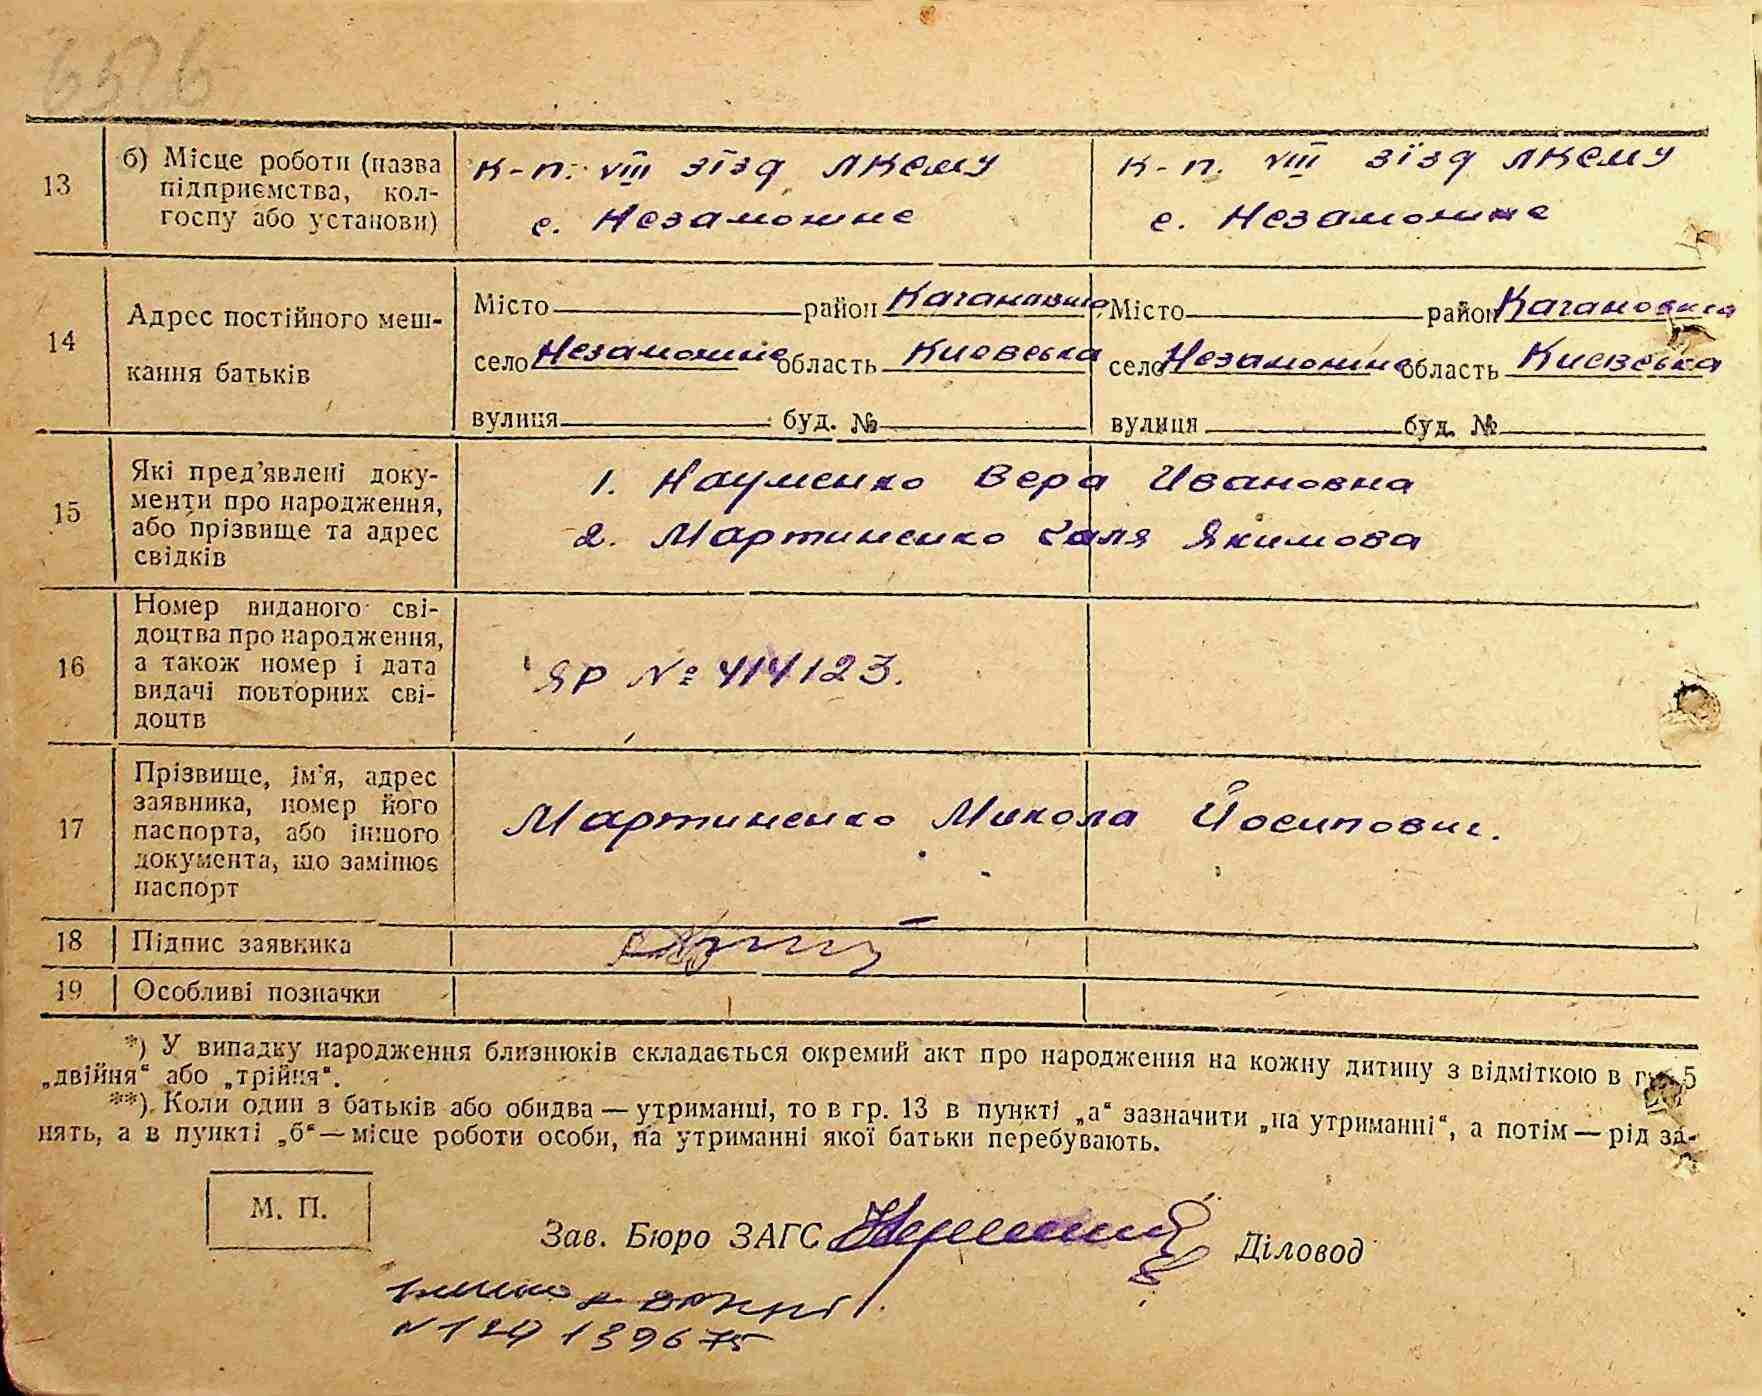 13
б) Місце роботи (назва
підприємства, кол-
госпу або установи)
к-п. VIII зїзд ЛКСМУ
с. Незаможне
к-п. VIII зїзд ЛКСМУ
с. Незаможне
14
Адрес постійного меш-
кання батьків
Місто район
село Незаможне область
вулиця буд. №
Місто район
село Незаможне область Києвська
вулиця буд. №
15
Які пред'явлені доку-
менти про народження,
або прізвище та адрес
свідків
1. Науменко Вера Ивановна
2. Мартиненко Галя Якимова
16
Номер виданого сві-
доцтва про народження,
а також номер і дата
видачі повторних сві-
доцтв
ЯР № 414123.
17
Прізвище, ім'я, адрес
заявника, номер його
паспорта, або іншого
документа, що замінює
паспорт
Мартиненко Микола Йосипович.
18
Підпис заявника
19
Особливі позначки
*) У випадку народження близнюків складається окремий акт про народження на кожну дитину з відміткою в гр. 5
„двійня“ або „трійня“.
**) Коли один з батьків або обидва — утриманці, то в гр. 13 в пункті „а“ зазначити „на утриманні“, а потім — рід за-
нять, а в пункті „б“ — місце роботи особи, на утриманні якої батьки перебувають.
М. П.
Зав. Бюро ЗАГС Діловод